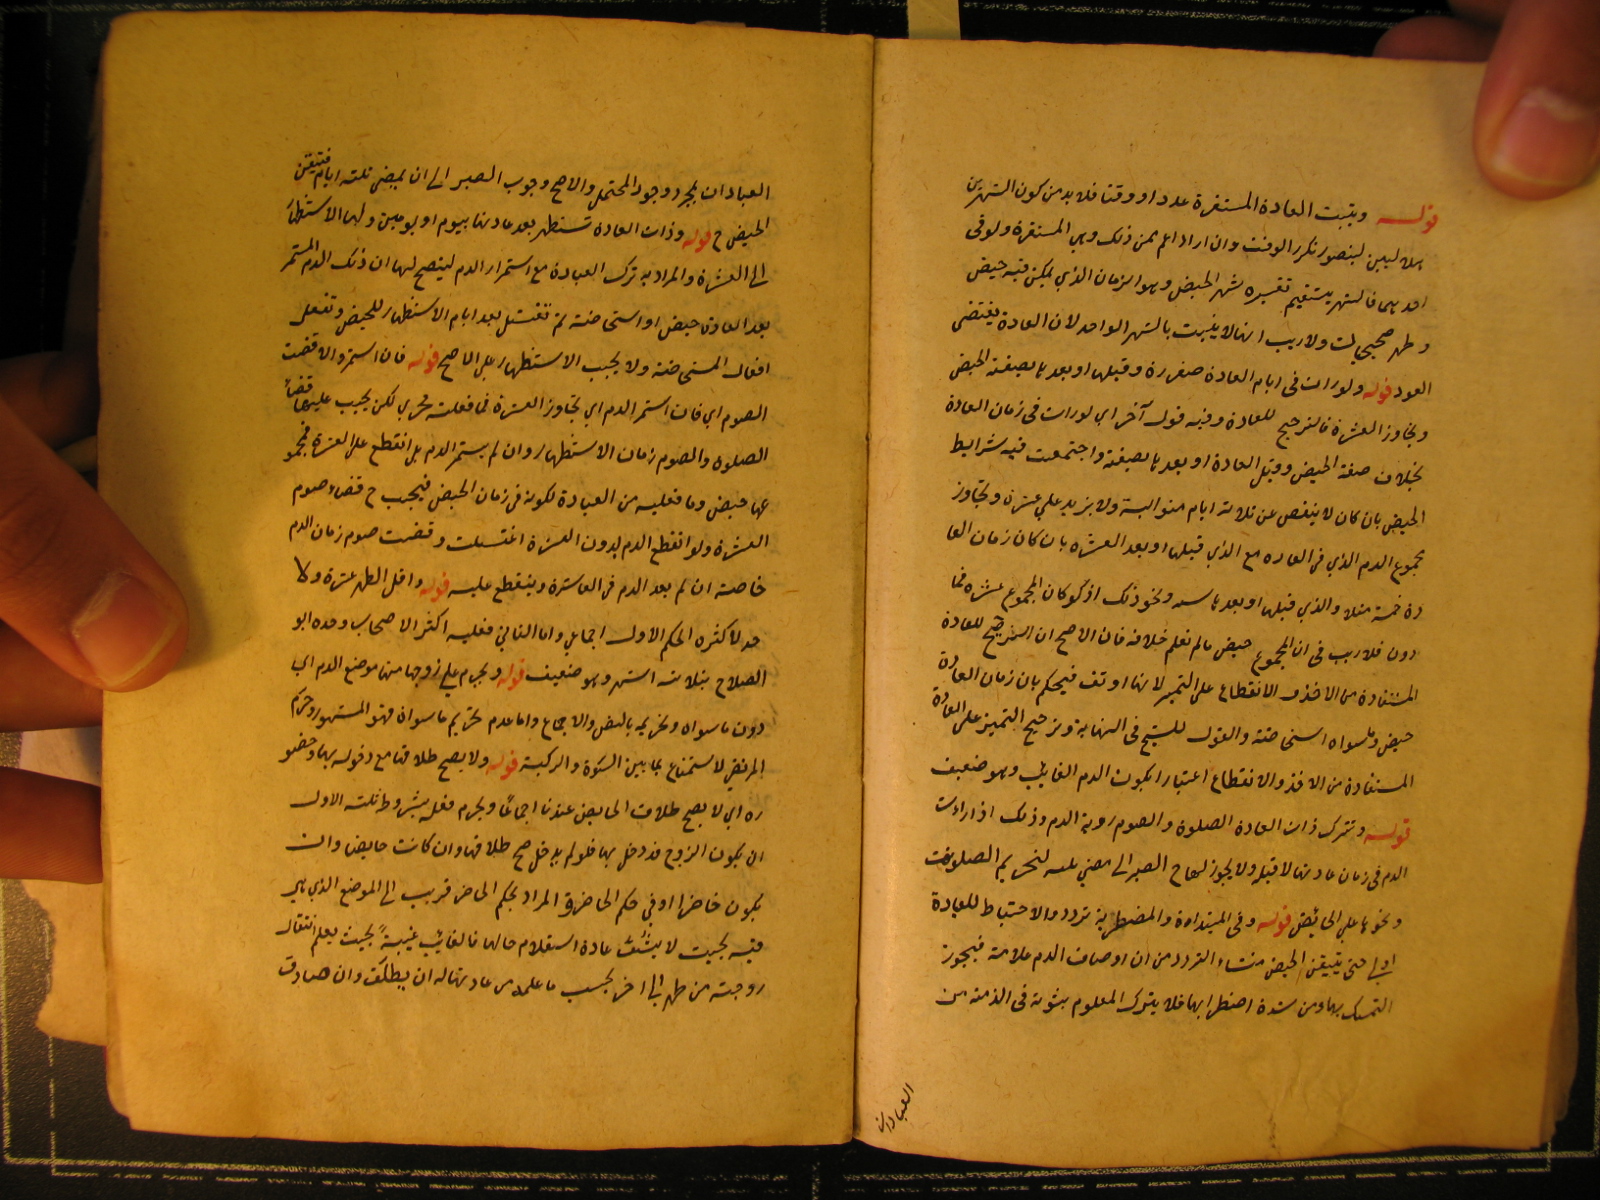 قوله ويثبت العادة المستقرة عددا ووقتا فلا بد من كون الشهرين
هلاليين ليتصور تكرر الوقت وان اراد اعم من ذلك وهي المستقرة ولو في
احديهما فالشهر يستقيم تفسيره بشهر الحيض وهو الزمان الذي يمكن فيه حيض
وطهر صحيحين ولا ريب انها لا يثبت بالشهر الواحد لان العادة يقتضي
العود قوله ولو رات في ايام العادة صفرة وقبلها او بعدها بصفة الحيض
وتجاوز العشرة فالترجيح للعادة وفيه قول آخر اي لو رات في زمان العادة
بخلاف صفة الحيض وقبل العادة او بعدها بصفته واجتمعت فيه شرايط
الحيض بان كان لا ينقص عن ثلاثة ايام متوالية ولا يزيد على عشرة وتجاوز
مجموع الدم الذي في العاده مع الذي قبلها او بعد العشره بان كان زمان العا
دة خمسة مثلا والذي قبلها او بعدها ونحو ذلك اذ لو كان المجموع عشره فما
دون فلا ريب في ان المجموع حيض مالم نعلم خلافه فان الاصح ان الترجيح للعادة
المستفادة من الاخذ والانقطاع على التمييز لانها اوثق فيحكم بان زمان العادة
حيض وما سواه استحاضة والقول للشيخ في النهاية وترجيح التمييز على العادة
المستفادة من الاخذ والانقطاع اعتبارا بكون الدم الغالب وهو ضعيف
قوله وتترك ذات العادة الصلوة والصوم روية الدم وذلك اذا رات
الدم في زمان عادتها لا قبله ولا يجوز لها ح الصبر الى مضي ثلثة لتحريم الصلوة
ونحوها على الحائض قوله وفي المبتداءة والمضطربة تردد والاحتياط للعبادة
اولى حتى يتيقن الحيض منشاء التردد من ان اوصاف الدم علامة فيجوز
التمسك بها ومن شدة اضطرابها فلا يترك المعلوم ثبوته في الذمة من
العبادات
العبادات بمجرد وجود المحتمل والاصح وجوب الصبر الى ان يمضي ثلثة ايام فيتيقن
الحيض ح قوله وذات العادة تستظهر بعد عادتها بيوم او يومين ولها الاستظهار
الى العشرة والمراد به ترك العبادة مع استمرار الدم ليتضح لها ان ذلك الدم المستمر
بعد العادة حيض او استحاضة ثم تغتسل بعد ايام الاستظهار للحيض وتفعل
افعال المستحاضة ولا يجب الاستظهار على الاصح قوله فان استمر والا قضت
الصوم اي فان استمر الدم اي تجاوز العشرة فما فعلته مجزي لكن يجب عليها قضاء
الصلوة والصوم زمان الاستظهار وان لم يستمر الدم بل انقطع على العشرة فمجمو
عها حيض وما فعليه من العبادة لكونه في زمان الحيض فيجب ح قضاء صوم
العشرة ولو انقطع الدم بدون العشرة اغتسلت وقضت صوم زمان الدم
خاصة ان لم يعد الدم في العاشرة وينقطع عليه قوله واقل الطهر عشرة ولا
حد لاكثره الحكم الاول اجماعي واما الثاني فعليه اكثر الاصحاب وحده ابو
الصلاح بثلاثة اشهر وهو ضعيف قوله ويحرم على زوجها منها موضع الدم اي
دون ما سواه وتحريمه بالنص والاجماع واما عدم تحريم ما سواه فهو المشهور وحرم
المرتضى الاستمتاع بما بين السرة والركبة قوله ولا يصح طلاقها مع دخوله بها وحضو
ره اي لا يصح طلاق الحايض عندنا اجماعًا ويحرم فعله بشروط ثلثة الاول
ان يكون الزوج قد دخل بها فلو لم يدخل صح طلاقها وان كانت حايضا وان
يكون حاضرا او في حكم الحاضر والمراد بحكم الحاضر قريب الى الموضع الذي هي
فيه بحيث لا يشق عادة استعلام حالها فالغائب غيبةً بحيث يعلم انتقال
زوجته من طهر الى اخر بحسب ما علمه من عادتها له ان يطلق وان صادف